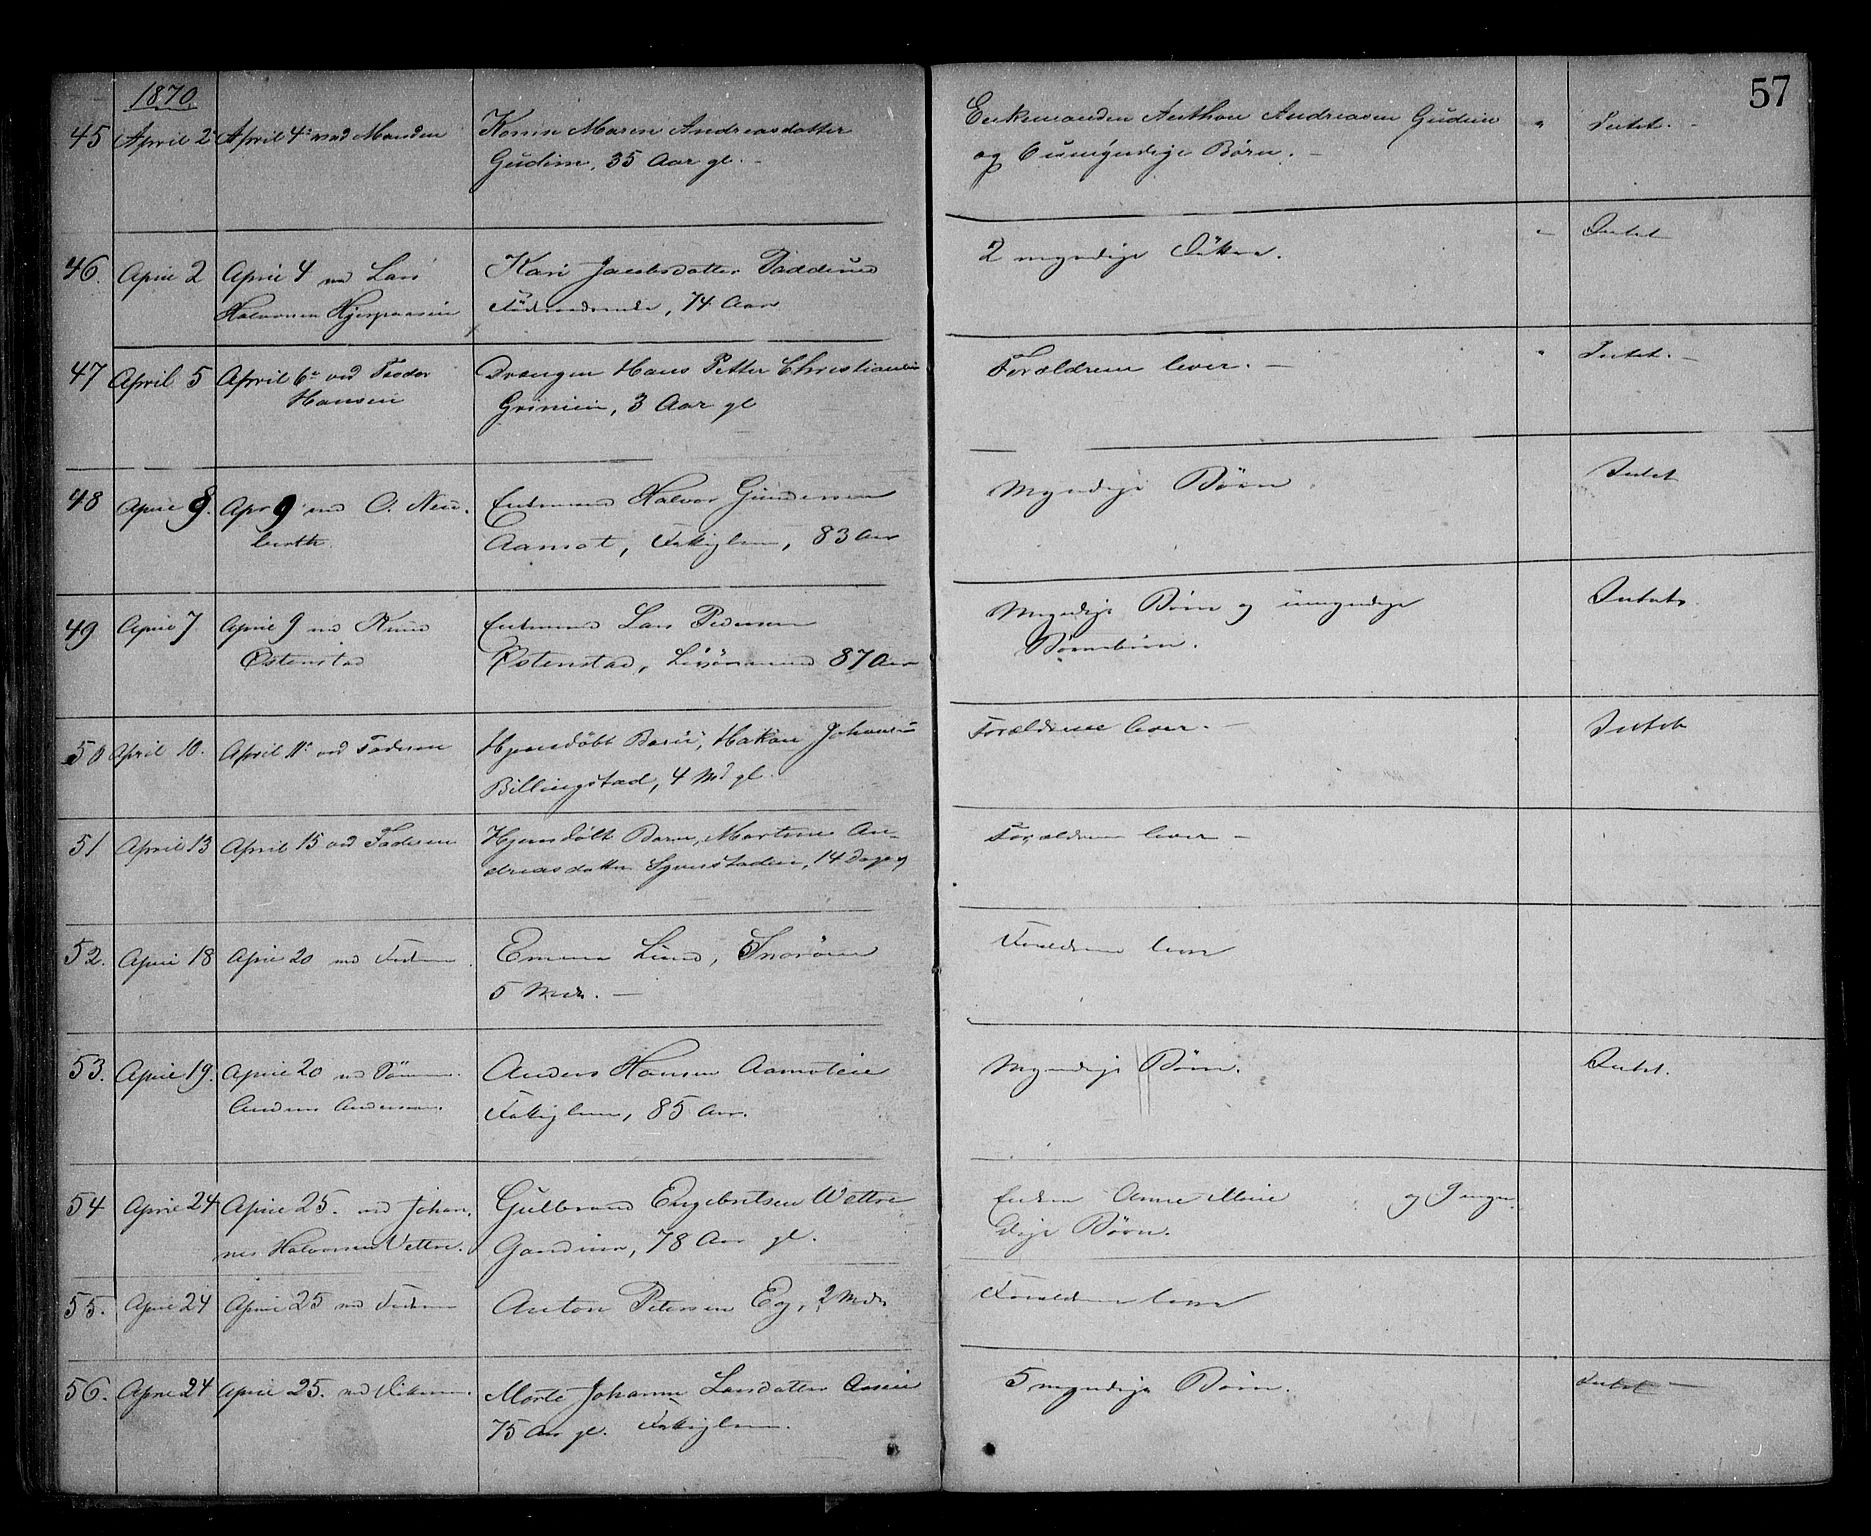 1870.
57
45 April 2. April 4. ved Manden Karen Maren Andreasdatter Enkemanden Anthon Andreasen Gudim " Intet. -
Gudim, 35 Aar gl. - og 6 umyndige Børn. -
46. April 2 April 4 ved Lars Kari Jacobsdatter 2 myndige - Intet
Halvorsen 74 Aar
47 April 5 April 6. ved Drengen Hans Petter Christiansen Forældrene lever. - " Intet. -
Hansen Grinieie, 3 Aar gl
48 April 8. Apr 9 ved O. Neu- Enkemand Halvor Gundersen Myndige Børn Intet
berth. Aamot, Fattiglem, 83 Aar
49 April 7 April 9 ved Knud Enkemand Lars Pedersen Myndige Børn og umyndige Intet.
Østenstad Østenstad, 87 Aar Børnebørn.
50 April 10. April 11. ved Faderen Hjemdøbt Barn, Hakon Johansen Forældrene lever. - Intet
Billingstad, 4 Md gl.
51 April 13 April 15 ved Faderen Hjemdøbt Barn, Martine An- Forældrene lever -
dreasdatter 14 Dage gl
52. April 18 April 20 ved Faderen Emma Lund, Snarøen Forældrene lever
5 Mdr. -
53. April 19. April 20 ved Sønnen Anders Hansen Aamoteie Myndige Børn. Intet.
Anders Andersen. Fattiglem, 85 Aar.
54 April 24 April 25. ved Johan- Gulbrand Engebretsen Wettre Enken Anne Marie og myn-
nes Halvorsen Vettre. 78 Aar gl. dige Børn.
55. April 24 April 25 ved Faderen Anton Petersen Eg, 2 Mdr Forældrene lever
56. April 24 April 25. ved Marte Johanne Larsdatter 5 myndige Børn. Intet -
75 Aar gl. Fattiglem.